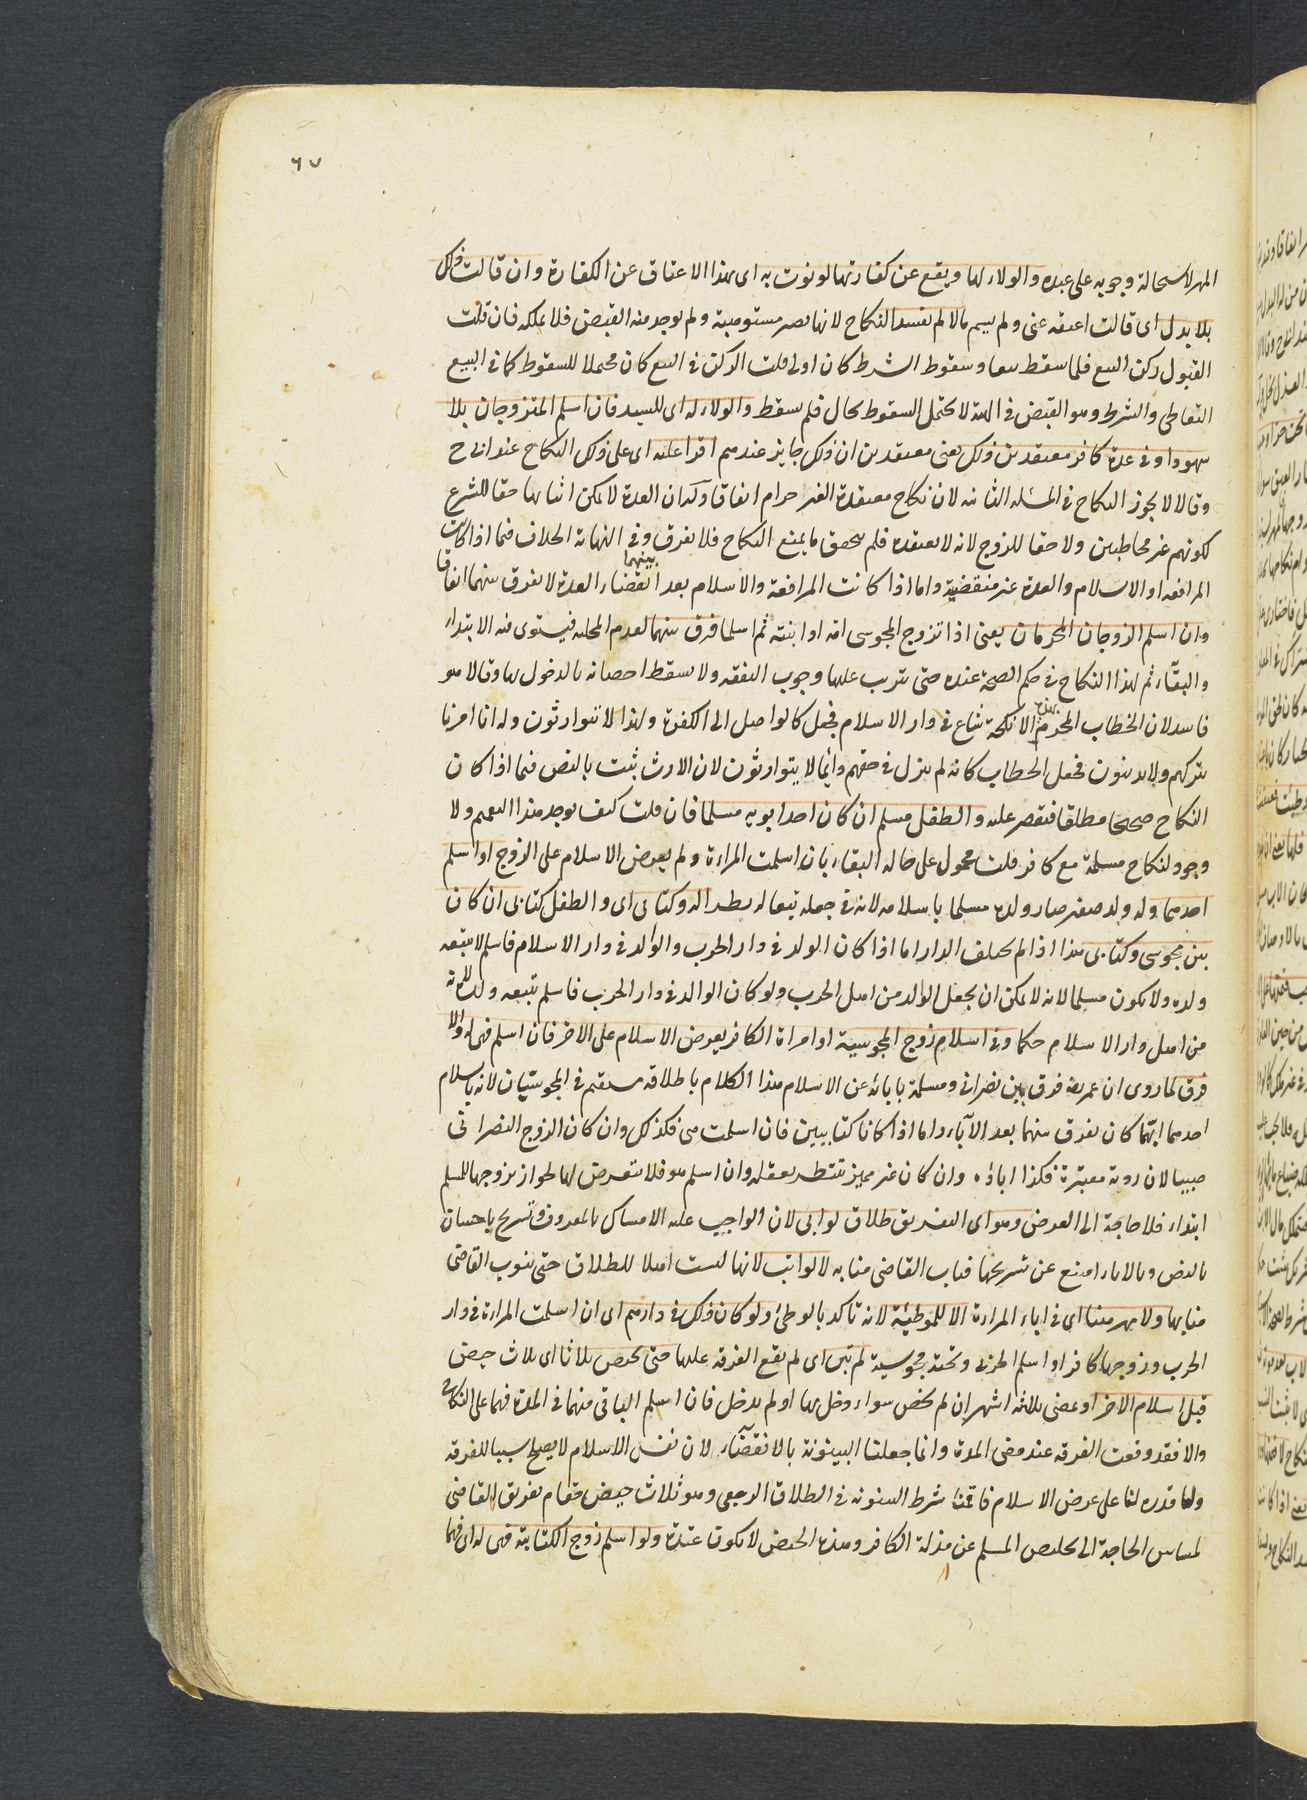 ٦٧
المهر لاستحالة وجوبه على عبده والولاء لها ويقع عن كفارتها لو نوت به اى بهذا الاعتاق عن الكفارة وان قالت ذلك
بلا بدل اى قالت اعتقه عنى ولم يسم مالا لم يفسد النكاح لانها تصير مستوهبة ولم يوجد منه القبض فلا يملكه فان قلت
القبول ركن البيع فلما سقط تبعا وسقوط الشرط كان اولى قلت الركن فى البيع كان محتملا للسقوط كما فى البيع
التعاطى والشرط وهو القبض فى الهبة لا يحتمل السقوط بحال فلم يسقط والولاء له اى للسيد فان اسلم المتزوجان بلا
شهود او فى عدة كافر معتقدين ذلك يعنى معتقدين ان ذلك جايز عندهم اقرا عليه اى على ذلك النكاح عند ابى ح
وقالا لا يجوز النكاح فى المسئلة الثانية لان نكاح معتدة الغير حرام اتفاقا وله ان العدة لا يمكن اثباتها حقا للشرع
لكونهم غير مخاطبين ولا حقا للزوج لانه لا يعتقده فلم يتحقق ما يمنع النكاح فلا يفرق وفى النهاية الخلاف فيما اذا كانت
بينهما
المرافعة او الاسلام والعدة غير منقضية واما اذا كانت المرافعة والاسلام بعد انقضاء العدة لا يفرق بينهما اتفاقا
وان اسلم الزوجان المحرمان يعنى اذا تزوج المجوسى امه او ابنته ثم اسلما فرق بينهما لعدم المحلية فيستوى فيه الابتداء
والبقاء ثم لهذا النكاح فى حكم الصحة عنده حتى يترتب عليها وجوب النفقة ولا يسقط احصانه بالدخول بها وقالا هو
فاسد لان الخطاب المحرم الانكحة شاع فى دار الاسلام فجعل كالواصل الى الكفرة ولهذا لا يتوارثون وله انا امرنا
بتركهم وما يدينون فجعل الخطاب كانه لم ينزل فى حقهم وانما لا يتوارثون لان الارث ثبت بالنص فيما اذا كان
النكاح صحيحا مطلقا فيقصر عليه والطفل مسلم ان كان احد ابويه مسلما فان قلت كيف يوجد هذا التعميم ولا
وجود لنكاح مسلمة مع كافر قلت محمول على حالة البقاء بان اسلمت المراءة ولم يعرض الاسلام على الزوج او اسلم
احدهما وله ولد صغير صار ولده مسلما باسلامه لانه فى جعله تبعا له نظرا له وكتابى اى والطفل كتابى ان كان
بين مجوسى وكتابى هذا اذا لم يختلف الدار اما اذا كان الولد فى دار الحرب والوالد فى دار الاسلام فاسلم لا يتبعه
ولده ولا يكون مسلما لانه لا يمكن ان يجعل الوالد من اهل الحرب ولو كان الوالد فى دار الحرب فاسلم يتبعه ولده لانه
من اهل دار الاسلام حكما وفى اسلام زوج المجوسية او امراة الكافر يعرض الاسلام على الاخر فان اسلم فهى له والا
فرق لما روى ان عمر رضه فرق بين نصرانى ومسلمة بابائه عن الاسلام هذا الكلام باطلاقه مستقيم فى المجوسيان لانه باسلام
احدهما ايهما كان يفرق بينهما بعد الآباء واما اذا كانا كتابيين فان اسلمت هى فكذلك وان كان الزوج النصرانى
صبيا لان ردته معتبرة فكذا اباؤه وان كان غير مميز ينتظر بعقله وان اسلم هو فلا يتعرض لها لجواز تزوجها للمسلم
ابتداء فلا حاجة الى العرض وهو اى التفريق طلاق لو ابى لان الواجب عليه الامساك بالمعروف او تسريح باحسان
بالنص وبالاباء امتنع عن تسريحها فناب القاضى منابه لا لو ابت لانها ليست اهلا للطلاق حتى ينوب القاضى
منابها ولا مهر هنا اى فى اباء المراءة الا للموطئية لانه تاكد بالوطئ ولو كان ذلك فى دارهم اى ان اسلمت المراءة فى دار
الحرب وزوجها كافر او اسلم الحربى وتحته مجوسية لم تبن اى لم يقع الفرقة عليها حتى تحيض ثلاثا اى ثلاث حيض
قبل اسلام الاخر او يمضى ثلاثة اشهر ان لم تحض سواء دخل بها او لم يدخل فان اسلم الباقى منهما فى المدة فهما على النكاح
والا فقد وقعت الفرقة عند مضى المدة وانما جعلنا البينونة بالانقضاء لان نفس الاسلام لا يصلح سببا للفرقة
ولا قدرة لنا على عرض الاسلام فاقمنا شرط البينونة فى الطلاق الرجعى وهو ثلاث حيض مقام تفريق القاضى
لمساس الحاجة الى تخليص المسلم عن مذلة الكافر وهذه الحيض لا يكون عدة ولو اسلم زوج الكتابية فهى له اى فهما